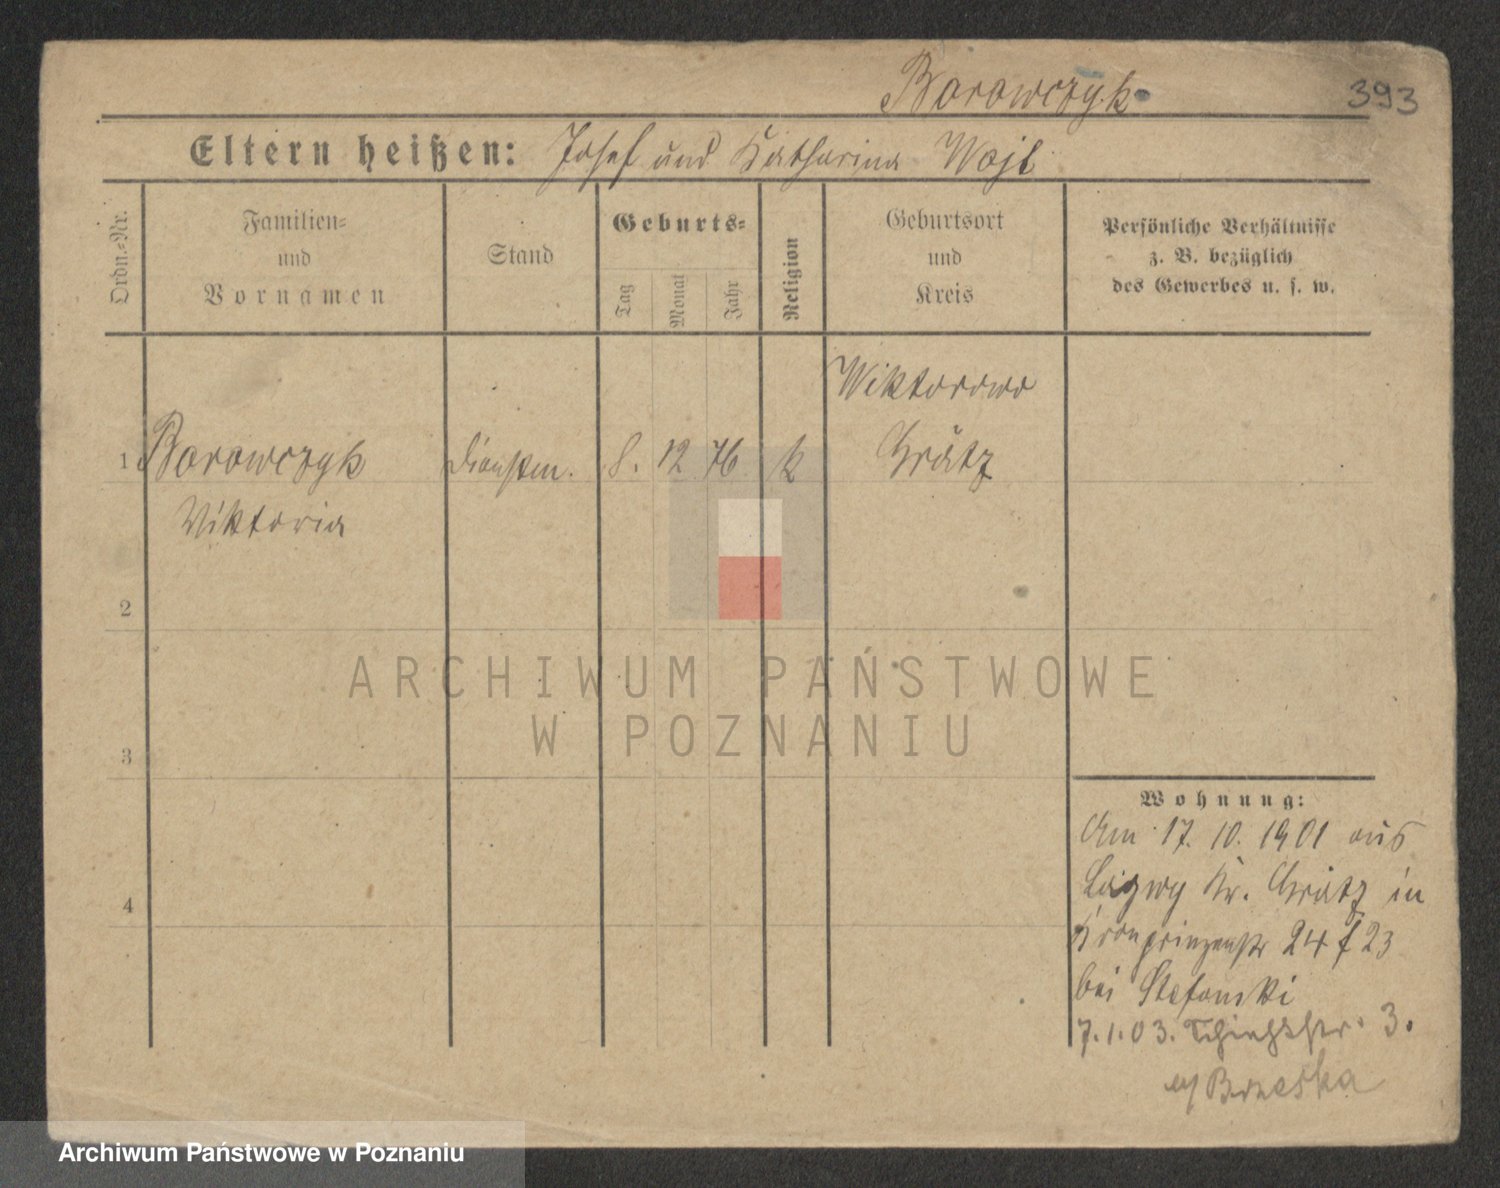 Borowczyk
393
Eltern heißen: Josef und Katharina Wojt
Ordn.=Nr.
Familien=
und
Vornamen
Stand
Geburts=
Tag
Monat
Jahr
Religion
Geburtsort
und
Kreis
Persönliche Verhältnisse
z. B. bezüglich
des Gewerbes u. s. w.
Wiktorowo
1 Borowczyk Dienstm. 8. 12 76 k Grätz
Viktoria
2
3
4
Wohnung:
Am 17. 10. 1901 aus
Kr. Grätz in
Kronprinzenstr 24 f 23
bei Stefanski
7.1.03. 3.
Brzeska
ARCHIWUM PAŃSTWOWE
W POZNANIU
Archiwum Państwowe w Poznaniu